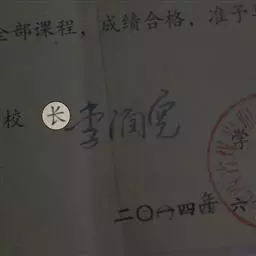 全部课程，成绩合格，准予
校 长 李润
学
二〇一四年 六